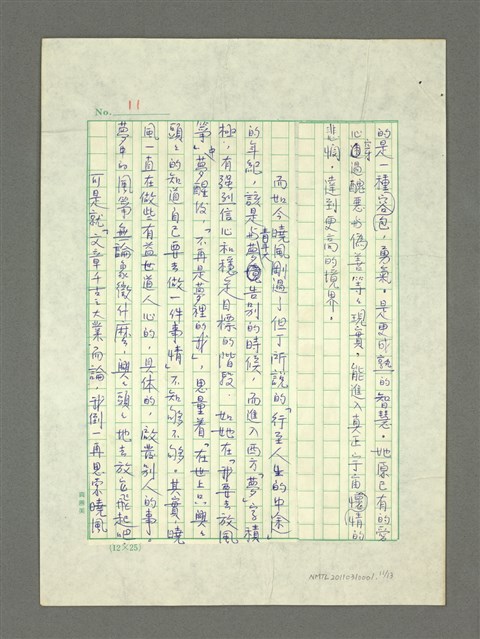 No. 11
的是一種容包,勇氣。是更成熟的智慧。她原已有的愛
心穿過醜惡与偽善等等現實,能進入真正宇宙懷情的
悲憫,達到更高的境界。
而如今曉風剛過了但丁所說的「行至人生的中途」
的年紀,該是与夢告別的時候,而進入西方「夢」字積
極,有強烈信心和穩定目標的階段。如她在「我要去放風
箏」中夢醒後,「不再是夢裡的我」,思量着「在世上只興興
頭頭的知道自己要去做一件事情」不知夠不夠。其實,曉
風一直在做些有益世道人心的,具体的,啟發別人的事。
夢中的風箏無論象徵什麼,興興頭頭地去放它飛起吧
可是就「文章千古之大業」而論,我倒一再思索曉風
(12×25)
NMTL20110310001 11/13